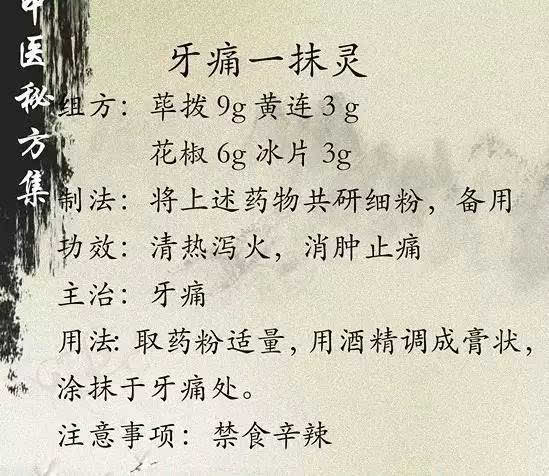 中医秘方集
牙痛一抹灵
组方：荜拨 9g 黄连 3 g
花椒 6g 冰片 3g
制法：将上述药物共研细粉，备用
功效：清热泻火，消肿止痛
主治：牙痛
用法：取药粉适量，用酒精调成膏状，
涂抹于牙痛处。
注意事项：禁食辛辣